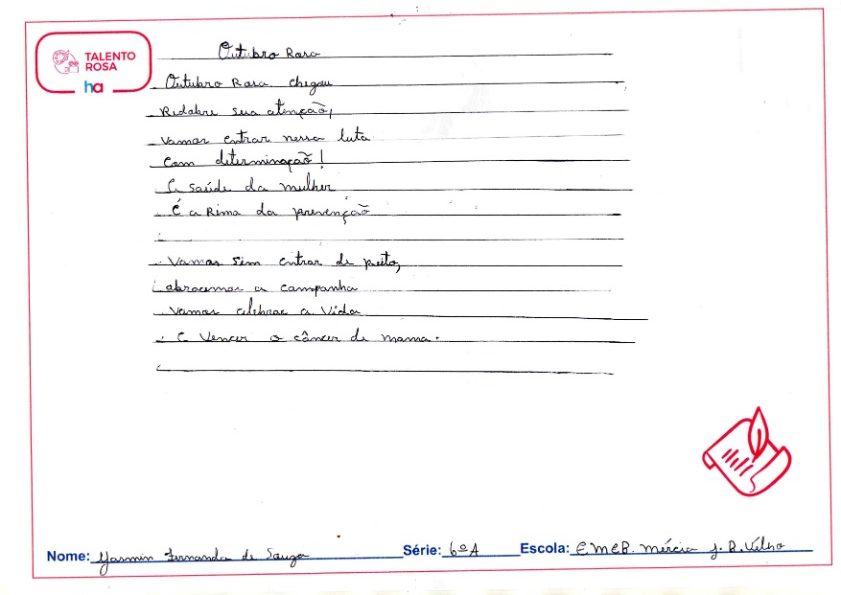 TALENTO
ROSA
ha
Outubro Rosa
Outubro Rosa chegou
Redobre sua atenção,
Vamos entrar nessa luta
Com determinação!
A saúde da mulher
É a Rima da prevenção
Vamos sim entrar de peito,
abracemos a campanha
Vamos celebrar a Vida
E Vencer o câncer de mama.
Nome: Yasmin Fernanda de Souza Série: 6º A Escola: EMEB. Mércia J. R. Velho